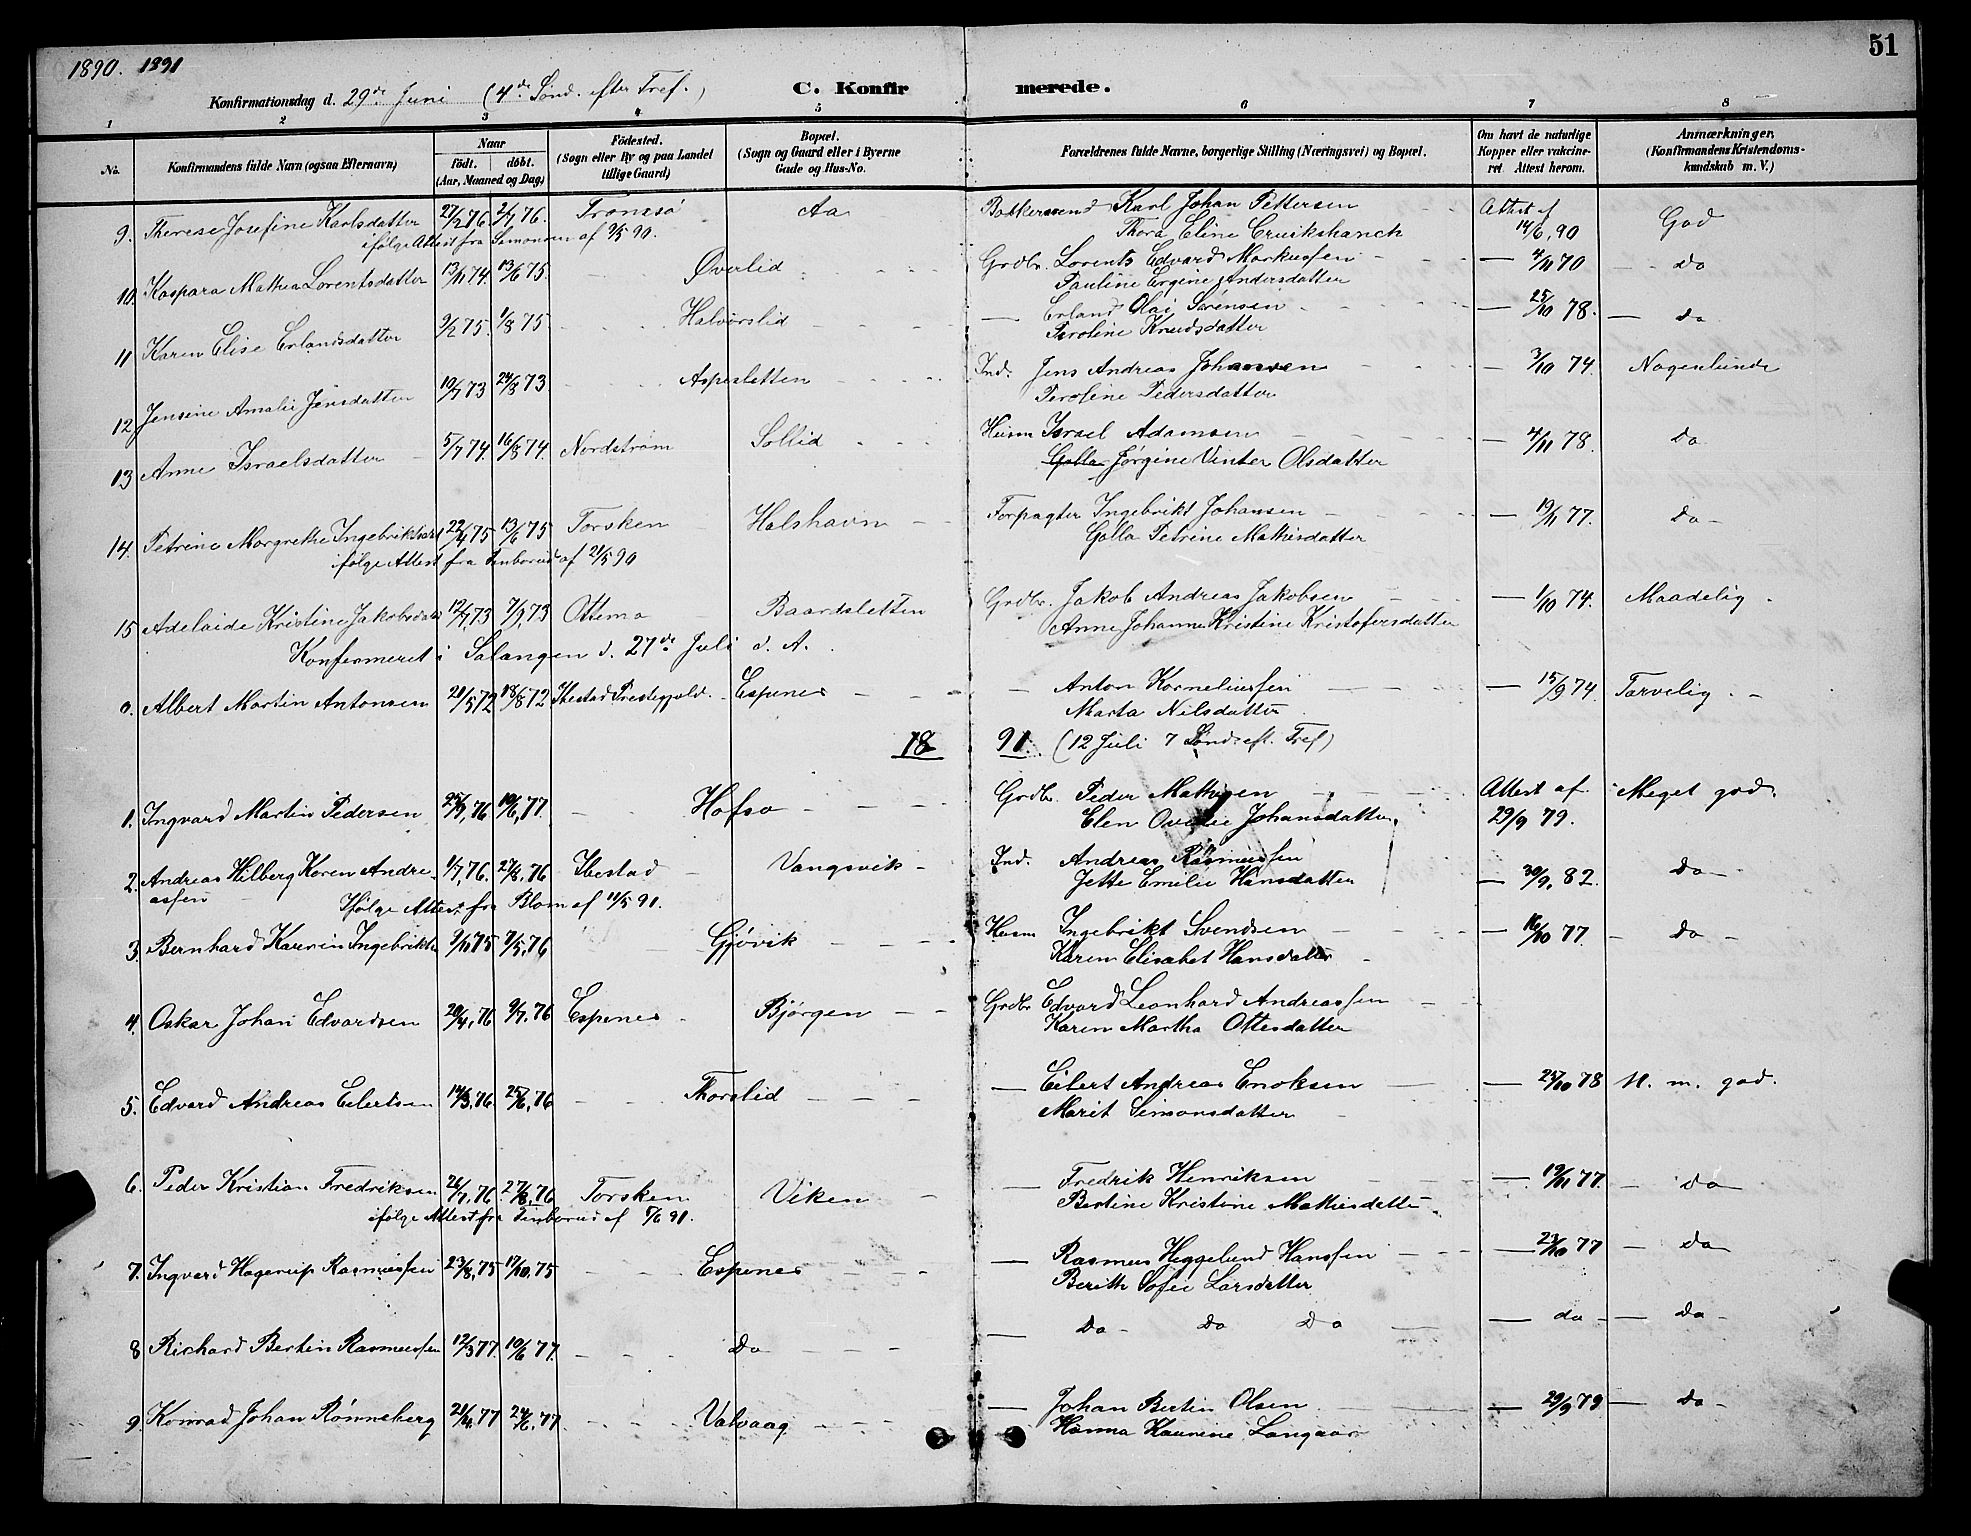 51
1890. 1891
Konfirmationsdag d. 29de Juni (4de Sønd. efter Tref.) C. Konfirmerede.
1 2 3 4 5 6 7 8
No. Konfirmandens fulde Navn (ogsaa Efternavn) Naar født. døbt. (Aar, Maaned og Dag) Fødested. (Sogn eller By og paa Landet tillige Gaard) Bopæl. (Sogn og Gaard eller i Byerne Gade og Hus-No. Forældrenes fulde Navne, borgerlige Stilling (Næringsvei) og Bopæl. Om havt de naturlige Kopper eller vakcineret Attest herom. Anmærkninger, (Konfirmandens Kristendomskundskab m. V.)
9. Therese Josefine Karlsdatter 27/2 76 2/7 76. Tromsø Aa Karl Johan Pettersen Attest af 14/6 90 God
ifølge Attest fra Simonsen af 9/5 90. Thora Eline Cruikshanck
10. Kaspara Mathea Lorentsdatter 13/11 74. 13/6 75. - - Øverlid - - Grdbr. Lorents Edvard Markussen - 4/11 70 - Do
Pauline Ergine Andersdatter
11 Karen Elise Erlandsdatter 9/2 75. 1/8 75 - - Halvorslid - - Erland Olai Sørensen - 25/10 78. - Do
Peroline Knudsdatter
12 Jensine Amalie Jensdatter 10/7 73 24/8 73. - - Aspesletten - - Ind. Jens Andreas Johansen - 3/10 74. Nogenlunde
Peroline Pedersdatter
13 Anne Israelsdatter 5/7 74. 16/8 74. Nordstrøm Sollid - - Husm Israel Adamsen - 4/11 78. Do
Golla Jørgine Vinter Olsdatter
14. Petrine Margrethe Ingebriktsdat 22/4 75 13/6 75 Torsken Halshavn - - Forpagter Ingebrikt Johansen - 19/11 77. Do -
ifølge Attest fra af 21/5 90 Golla Petrine Mathisdatter
15 Adelaide Kristine Jakobsdat 12/7 73 7/9 73 Ottemo Baardsletten Grdbr. Jakob Andreas Jakobsen - 1/10 74. Maadelig.
Anne Johanne Kristine Kristofersdatter
Konfermeret i Salangen d. 27de Juli d. A.
0. Albert Martin Antonsen 21/5 72 18/8 72 Ibestad Prestegjeld. Espenes - - Anton Korneliussen - 15/9 74. Tarvelig. -
Marta Nilsdatter
18 91. (12 Juli 7 Sønd. eft. Tref)
1. Ingvard Martin Pedersen 25/7, 76 10/6, 77. - - Hofso - - Grdbr Peder Mathisen Attest af 29/9 79. Meget god.
Elen Ovedie Johansdatter
2. Andreas Hilberg Koren Andreassen 1/7, 76. 27/8, 76 Ibestad Vangsvik - Ind. Andreas Rasmussen - 30/9, 82. Do
Ifølge Attest fra Blom af 11/5 91. Jette Emilie Hansdatter
3. Bernhard Kaurin Ingebrikts 9/11 75 7/5, 76 - Gjøvik - - Husm Ingebrikt Svendsen - 16/10 77. - Do -
Karen Elisabet Hansdatter
4. Oskar Johan Edvardsen 20/4, 76 9/7. 76 Espenes - Bjørgen - - Grdbr Edvard Leonhard Andreassen
Karen Martha Ottesdatter
5. Edvard Andreas Eilertsen 14/3, 76. 25/6, 76 - - Thorslid - - Eilert Andreas Enoksen - 25/10 78 M. m. god.
Marit Simonsdatter
6. Peder Kristian Fredriksen 26/7, 76. 27/8, 76 Torsken Viken - Fredrik Henriksen - 19/11 77. - Do
ifølge Attest fra af 5/6 91. Bertine Kristine Mathisdatter
7. Ingvard Hagerup Rasmussen 23/8, 75 17/10, 75 - - Espenes - - Rasmus Heggelund Hanssen - 23/10 77 - Do
Berith Sofie Larsdatter
8 Richard Bertin Rasmussen 12/3 77. 10/6 77. - - Do - - Do - Do Do - do - - Do -
9. Konrad Johan Rønneberg 21/4, 77 24/6, 77. - - Valvaag - - Johan Bertin Olsen. - 29/9 79 - Do -
Hanna Kaurine Langaar